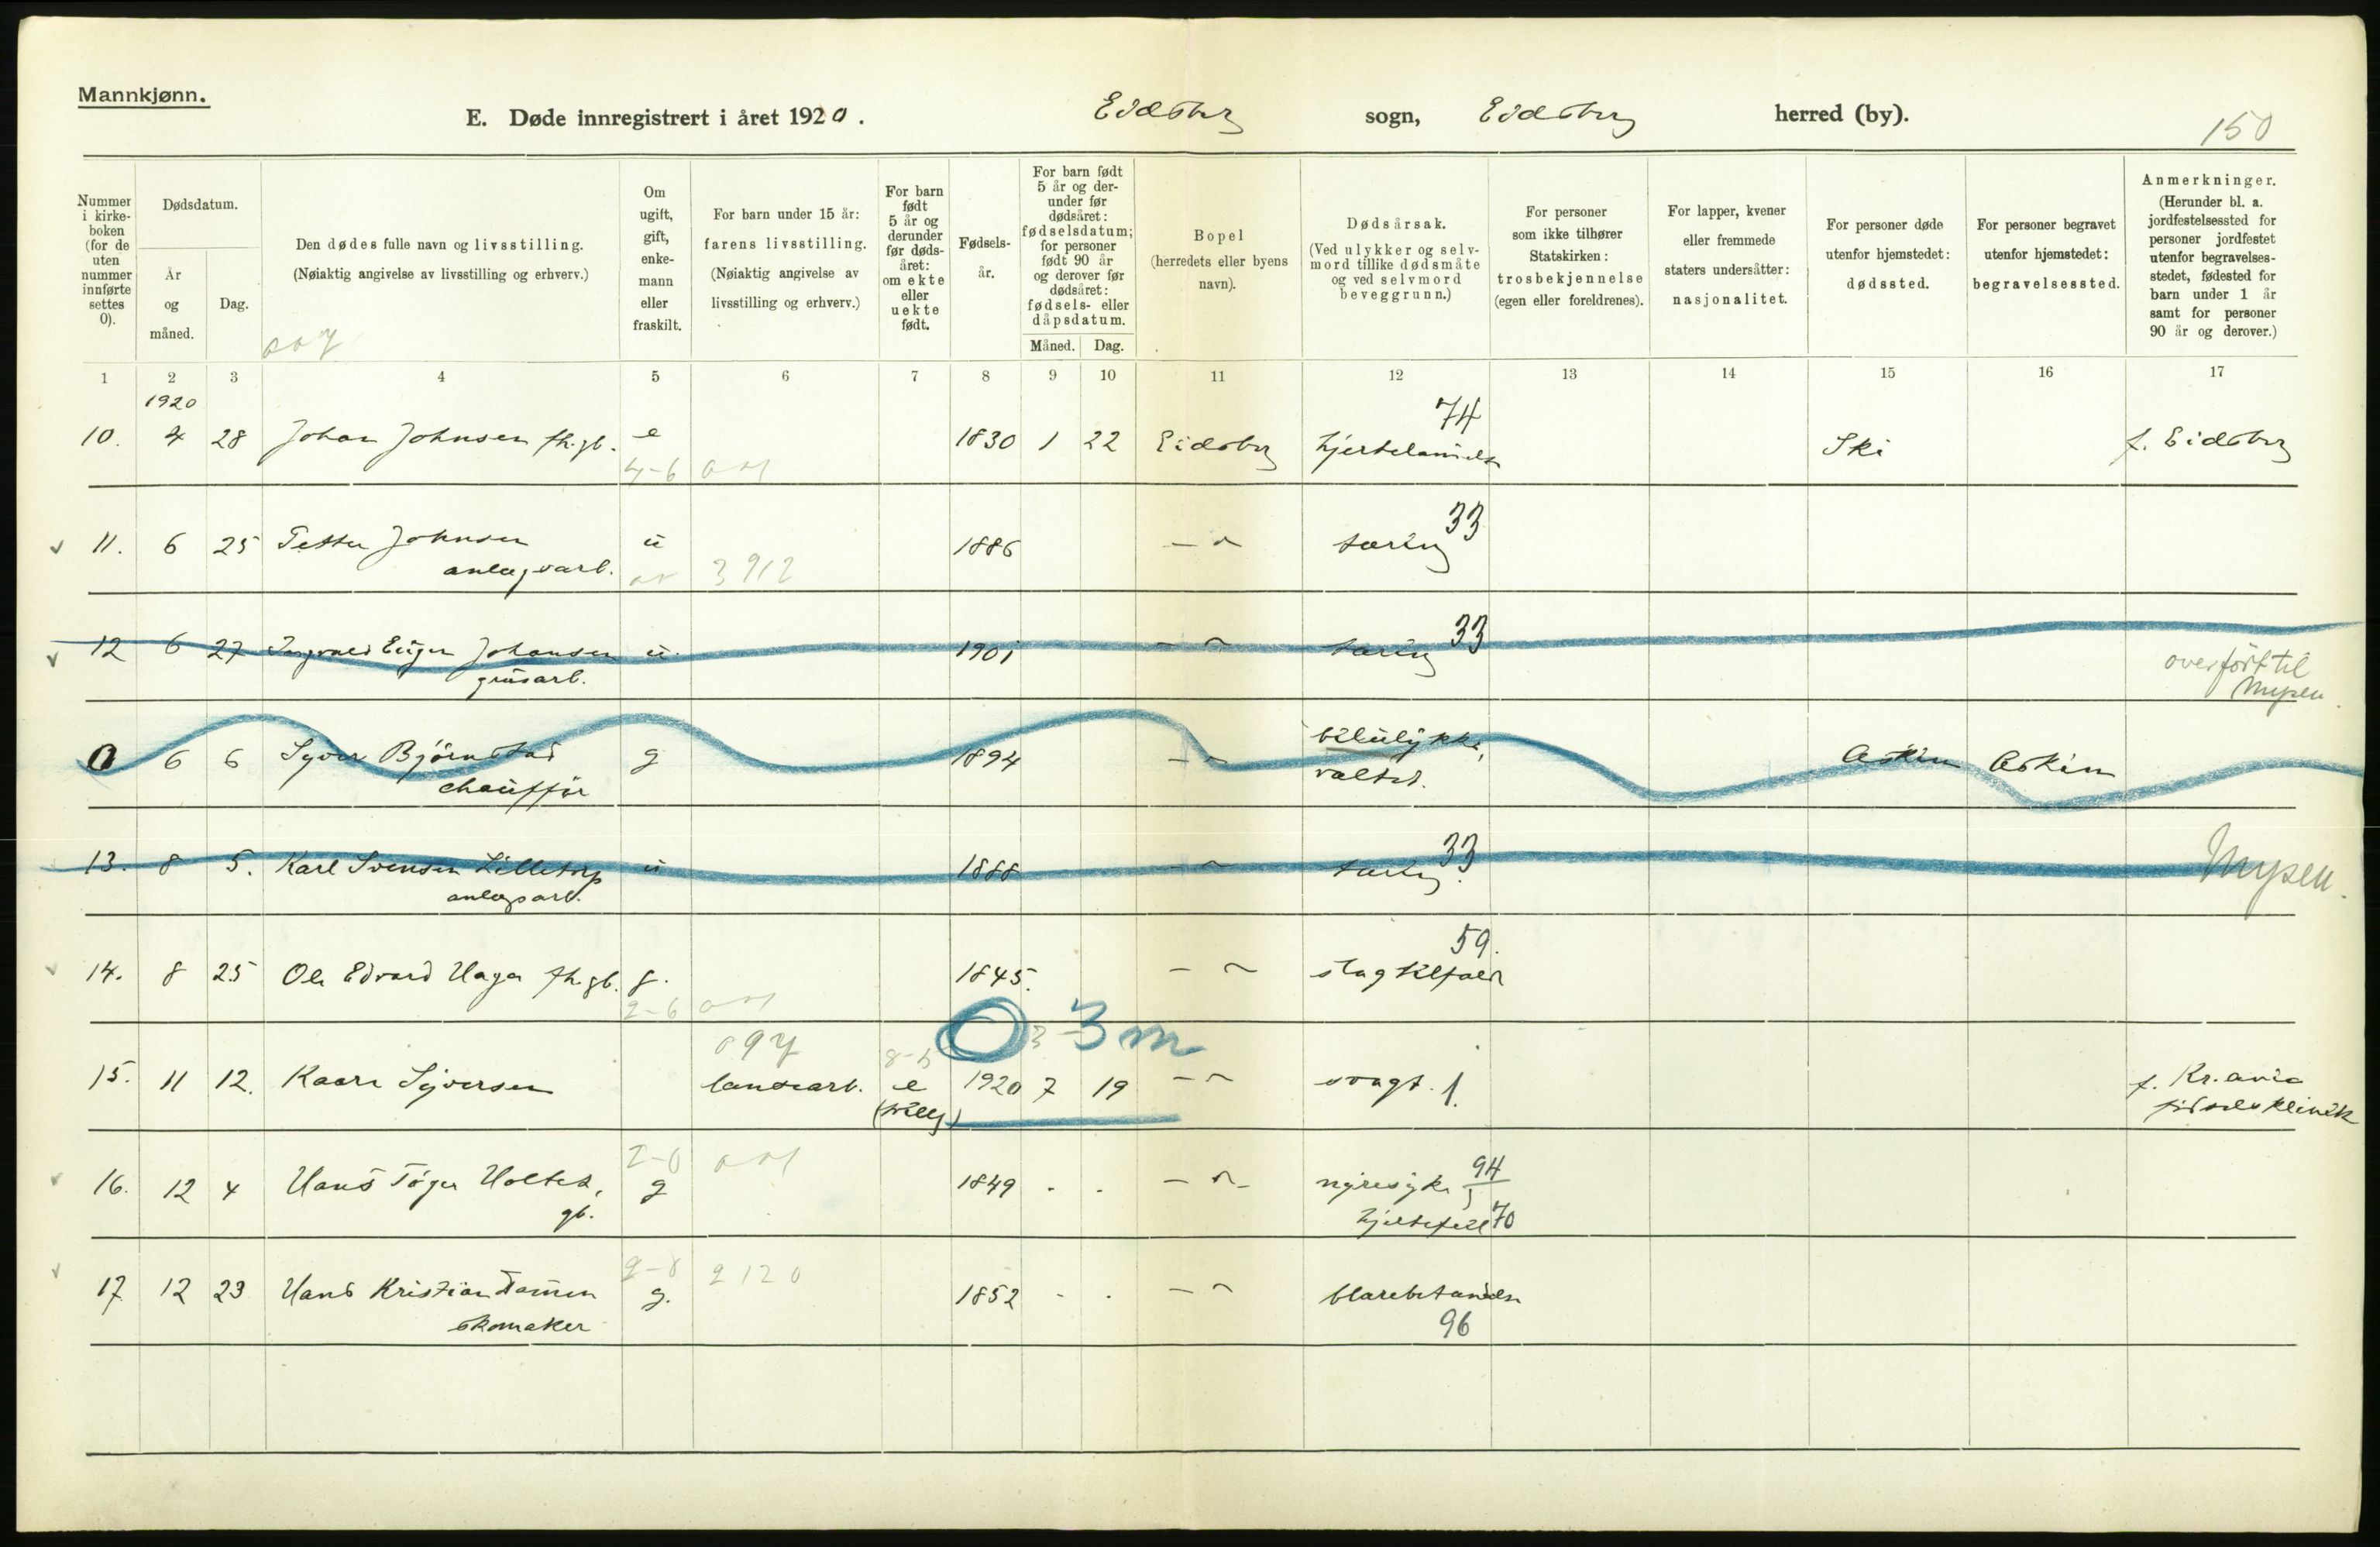 Mannkjønn.
E. Døde innregistrert i året 1920. Eidsberg sogn, Eidsberg herred (by). 150
Nummer i kirke- boken (for de uten nummer innførte settes 0).
Dødsdatum.
År og måned.
Dag.
Den dødes fulle navn og livsstilling.
(Nøiaktig angivelse av livsstilling og erhverv.)
Om ugift, gift, enke- mann eller fraskilt.
For barn under 15 år: farens livsstilling. (Nøiaktig angivelse av livsstilling og erhverv.)
For barn født 5 år og derunder før døds- året: om ekte eller uekte født.
Fødsels- år.
For barn født 5 år og der- under før dødsåret: fødselsdatum; for personer født 90 år og derover før dødsåret: fødsels- eller dåpsdatum.
Måned. Dag.
Bopel (herredets eller byens navn).
Dødsårsak. (Ved ulykker og selv- mord tillike dødsmåte og ved selvmord beveggrunn.)
For personer som ikke tilhører Statskirken: trosbekjennelse (egen eller foreldrenes).
For lapper, kvener eller fremmede staters undersåtter: nasjonalitet.
For personer døde utenfor hjemstedet: dødssted.
For personer begravet utenfor hjemstedet: begravelsessted.
Anmerkninger. (Herunder bl. a. jordfestelsessted for personer jordfestet utenfor begravelses- stedet, fødested for barn under 1 år samt for personer 90 år og derover.)
1 2 3 4 5 6 7 8 9 10 11 12 13 14 15 16 17
1920
74
10. 4 28 Johan Johnsen fh.gb. e 1830 1 22 Eidsberg hjertelammelse Ski f. Eidsberg
4-6
33
11. 6 25 Petter Johnsen u 1886 - " - tæring
anlægsarb. 3912
33
12 6 27 Ingvald Eugen Johansen u. 1901 - " - tæring
grusarb. overført til
Mysen.
0 6 6 Syver Bjørnstad g 1894 - " - bilulykke, Askim Askim
chauffør veltet.
33
13. 8 5. Karl Svensen Lilletorp u 1888 - " - tæring. Mysen.
anlægsarb.
59.
14. 8 25 Ole Edvard Haga fh.gb. g. 1845. - " - slagtilfæld
2-6
0 3 3 m
15. 11 12. Kaare Syversen landearb. e 1920 7 19 - " - svagt. 1. f. Kr.ania
(tvilling) fødselsklinik
2-0
16. 12 4 Hans Tøger Holtet, g 1849 - " - nyresyke 94
gb. hjertefeil 70
2-8 2120
17 12 23 Hans Kristian Tomen g. 1852 - " - blærebetændelse
skomaker 96